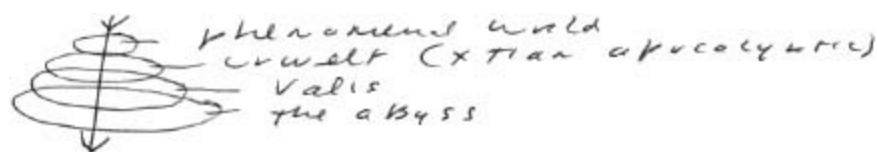 phenomenal world
urwelt (Xtian apocalyptic)
Valis
the abyss